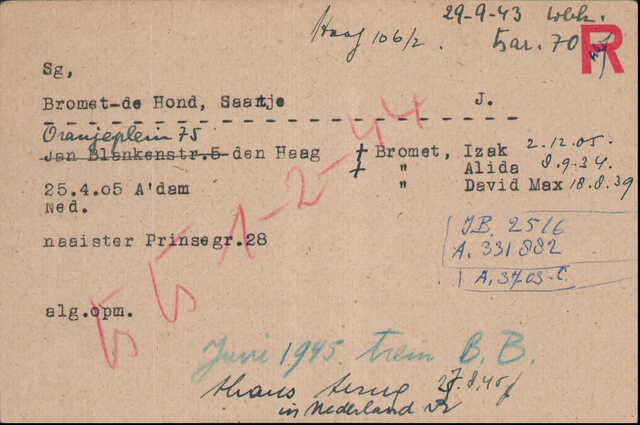 29-9-43 Wbk.
Haag 106/2. bar. 70
R
Sg,
Bromet-de Hond, Saartje J.
Oranjeplein 75
Jan Blankenstr.5 den Haag + Bromet, Izak 2.12.05.
+ " Alida 8.9.34.
25.4.05 A'dam " David Max 18.8.39
Ned.
JB. 2516
naaister Prinsegr.28
A. 331882
A. 3703-C.
1-2-44
alg.opm.
Juni 1945 trein B.B.
thans terug 27.8.45
in Nederland